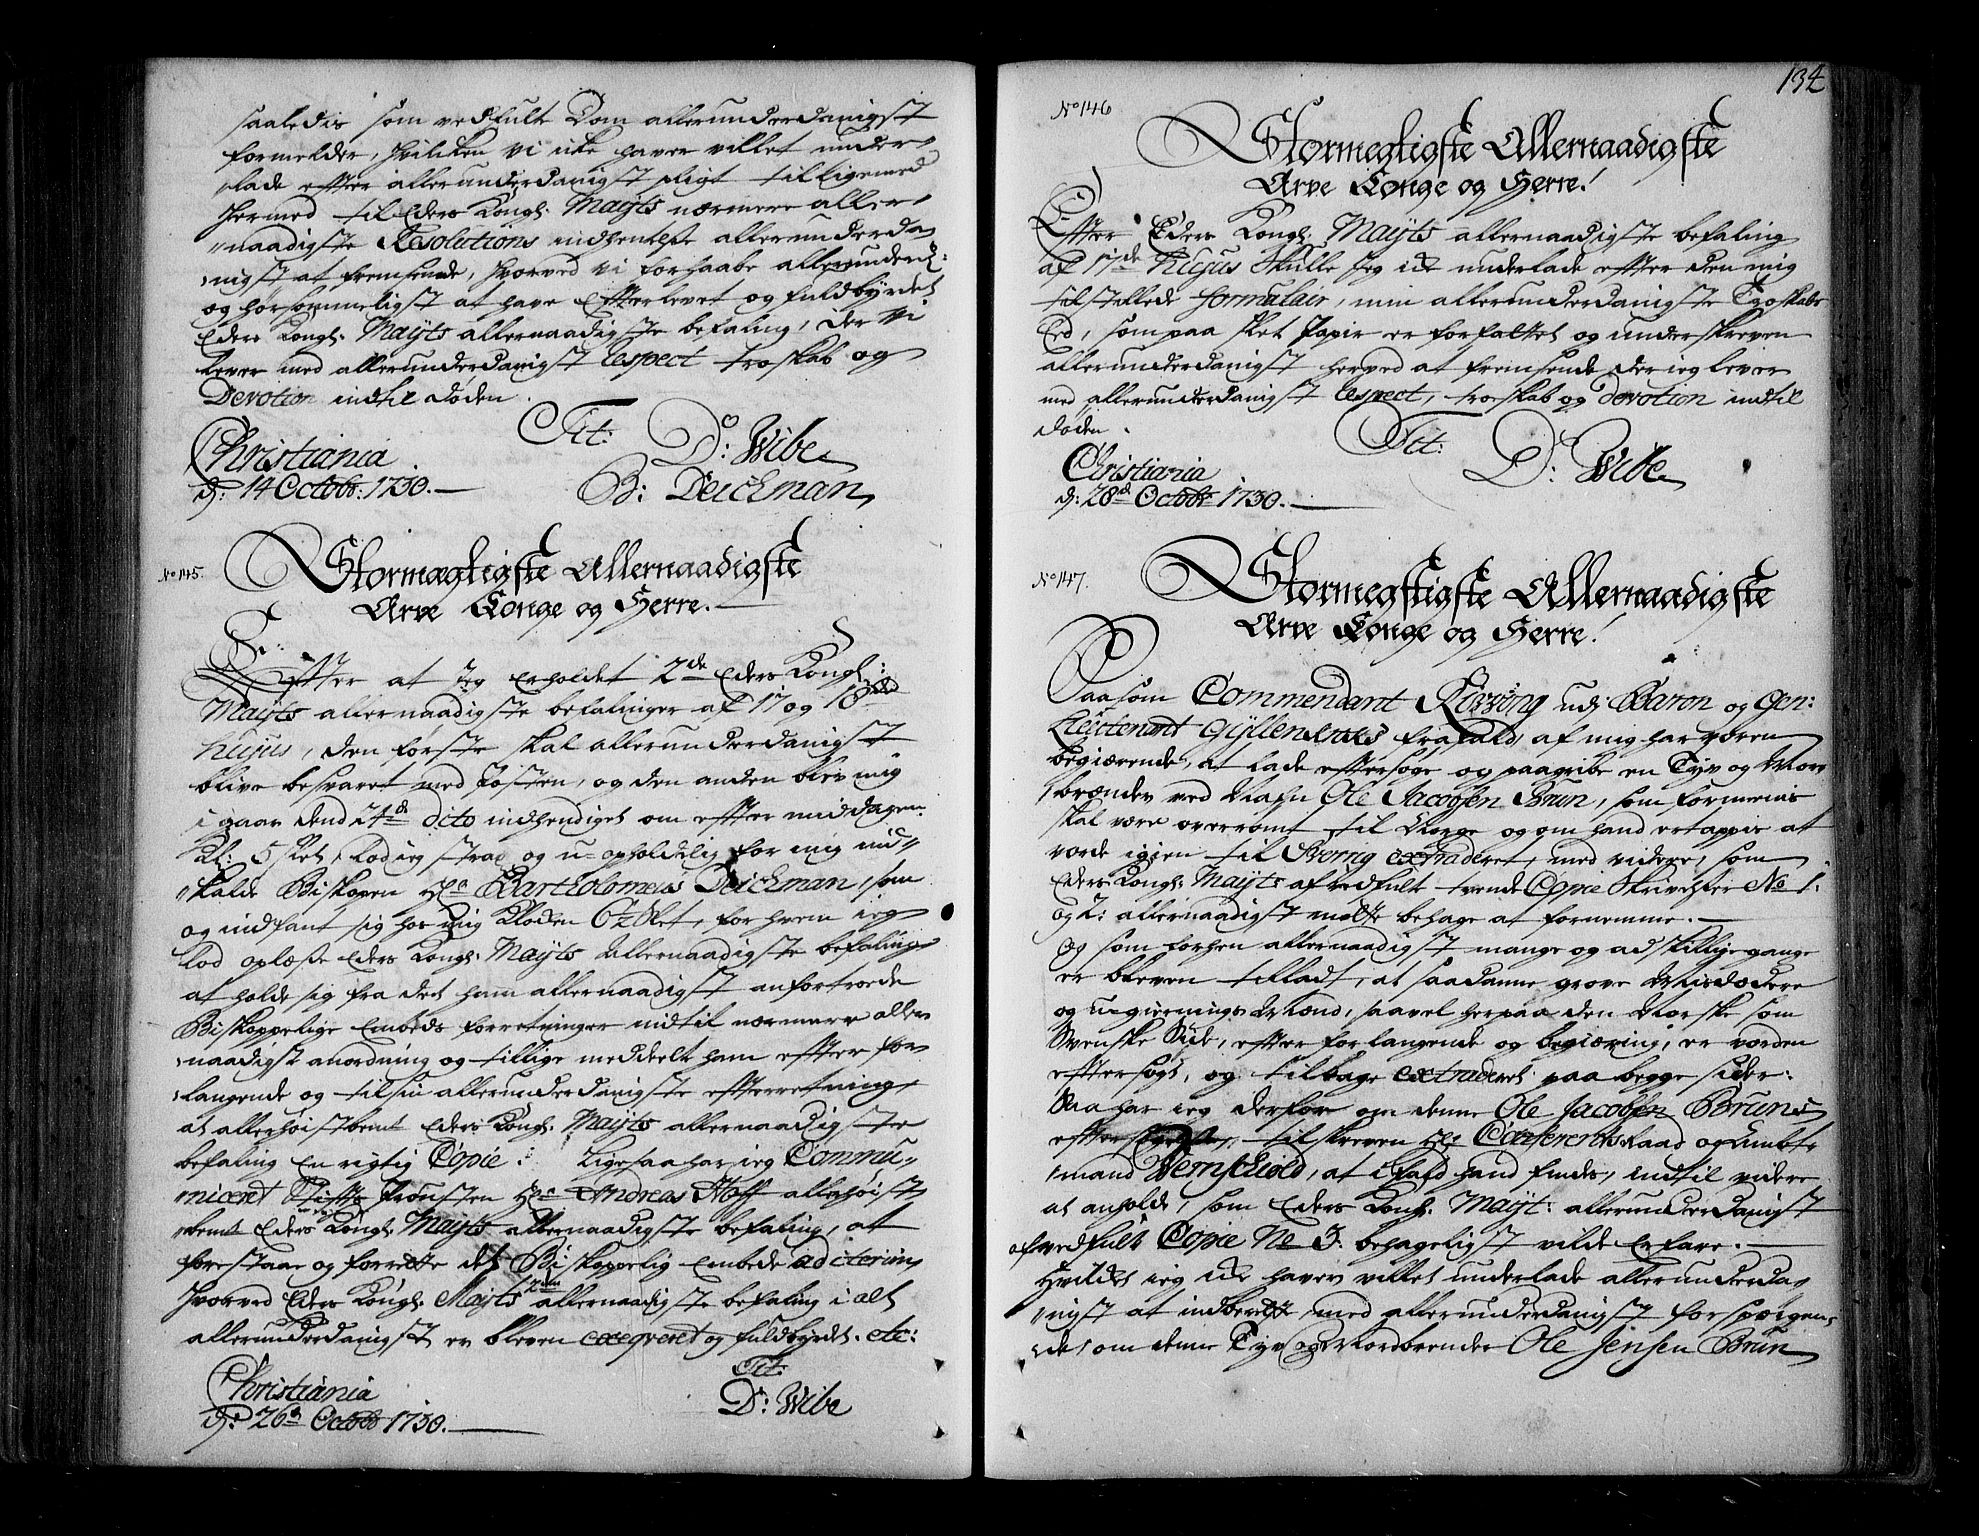 saaledis som vedfulte Dom allerunderdanigst
formelder, hvilcken vi icke haver villet under-
lade efter allerunderdanigst pligt tilligemed
hermed til Eders Kongl: Mayts nærmere aller-
naadigste Resolutions indhentelse allerunderda-
nigst at fremsende, hvorved vi forhaabe allerunderd:
og horsommeligst at have efterlevet og fuldbyrdet
Eders Kongl: Mayts allernaadigste befaling, der vi
lever med allerunderdanigst respect troskab og
Devotion indtil döden.
Tit:
D: Wibe
Christiania
d: 14 Octobr: 1730.
B: Deichman
No 145.
Stormægtigste Allernaadigste
Arve Konge og Herre.
Efter at Jeg erholdet 2de Eders Kongl:
Mayts allernaadigste befalinger af 17 og 18de
hujus, den förste skal allerunderdanigst
blive besvaret med Posten, og den anden blev mig
i gaar dend 24de dito indhendiget om efter middagen
Kl: 5 slet, lod jeg strax og u-opholdelig for mig ind-
kalde Biskopen Hr Bartholomeus Deichman, som
og indfant sig hos mig Kloken 6½ Slet, for hvem jeg
lod oplæse Eders Kongl: Mayts Allernaadigste befaling
at holde sig fra det ham allernaadigst anfortroede
Biskoppelige Embeds forretninger indtil nærmere aller-
naadigst anordning og tillige meddeelt ham efter for-
langende og til sin allerunderdanigste efterretning
at allerhöistbemt Eders Kongl: Mayts allernaadigste
befaling en rigtig Copie: Ligesaa har jeg Commu-
niceret Stifts Provsten Hr Andreas Hoff allerhöist-
bemt Eders Kongl: Mayts allernaadigste befaling, at
forestaae og forrette det Biskoppelig Embede ad interim
hvorved Eders Kongl: Mayts allernaadigste befaling i alt
allerunderdanigst er bleven exeqveret og fuldbyrdet. etc:
Tit:
Christiania
D: Wibe
d: 26de Octobr 1730.
134
No 146
Stormegtigste Allernaadigste
Arve Konge og Herre!
Efter Eders Kongl: Mayts allernaadigste befaling
af 17de hujus skulle Jeg icke underlade efter den mig
tilstillede formulair, min allerunderdanigste Troskabs
Eed, som paa slet Papir er forfattet og underskreven
allerunderdanigst herved at fremsende der jeg lever
med allerunderdanigst respect, troskab og devotion indtil
döden.
Tit:
Christiania
D: Wibe
d: 28de Octobr 1730.
No 147.
Stormegtigste Allernaadigste
Arve Konge og Herre!
Saasom Commendant udj Baron og Gen:
Lieutenant Gyllenkrees frafald af mig har væren
begiærende, at lade eftersöge og paagribe en Tyv og Mord-
brænder ved Nafn Ole Jacobsen Brun, som formenis
skal være overromt til Norge og om hand ertappis at
vorde igien til Sverig extraderet, med videre, som
Eders Kongl: Mayts af vedfult tvende Copie Skrivelser No 1:
og 2: allernaadigst motte behage at fornemme.
Og som forhen allernaadigst mange og adskillige gange
er bleven tilladt, at saadanne grove Misdædere
og ugierningsmænd, saavel her paa den Norske som
Svenske Side, efter forlangende og begiæring, er vorden
eftersögt, og tilbage extraderet paa begge sider.
Saa har jeg derfore om denne Ole Jacobsen Bruns
tilskreven Hr Conferentsraad og Ambt-
mand Vernschiold, at i fald hand findes, indtil videre
at anholde, som Eders Kongl: Mayt: allerunderdanigst
af vedfult Copie No 3: behageligst vilde erfare.
Hvilket jeg icke haver villet underlade allerunderda-
nigst at indberette, med allerunderdanigst forspörgen-
de, om denne Tyv og Mordbrender Ole Jensen Brun